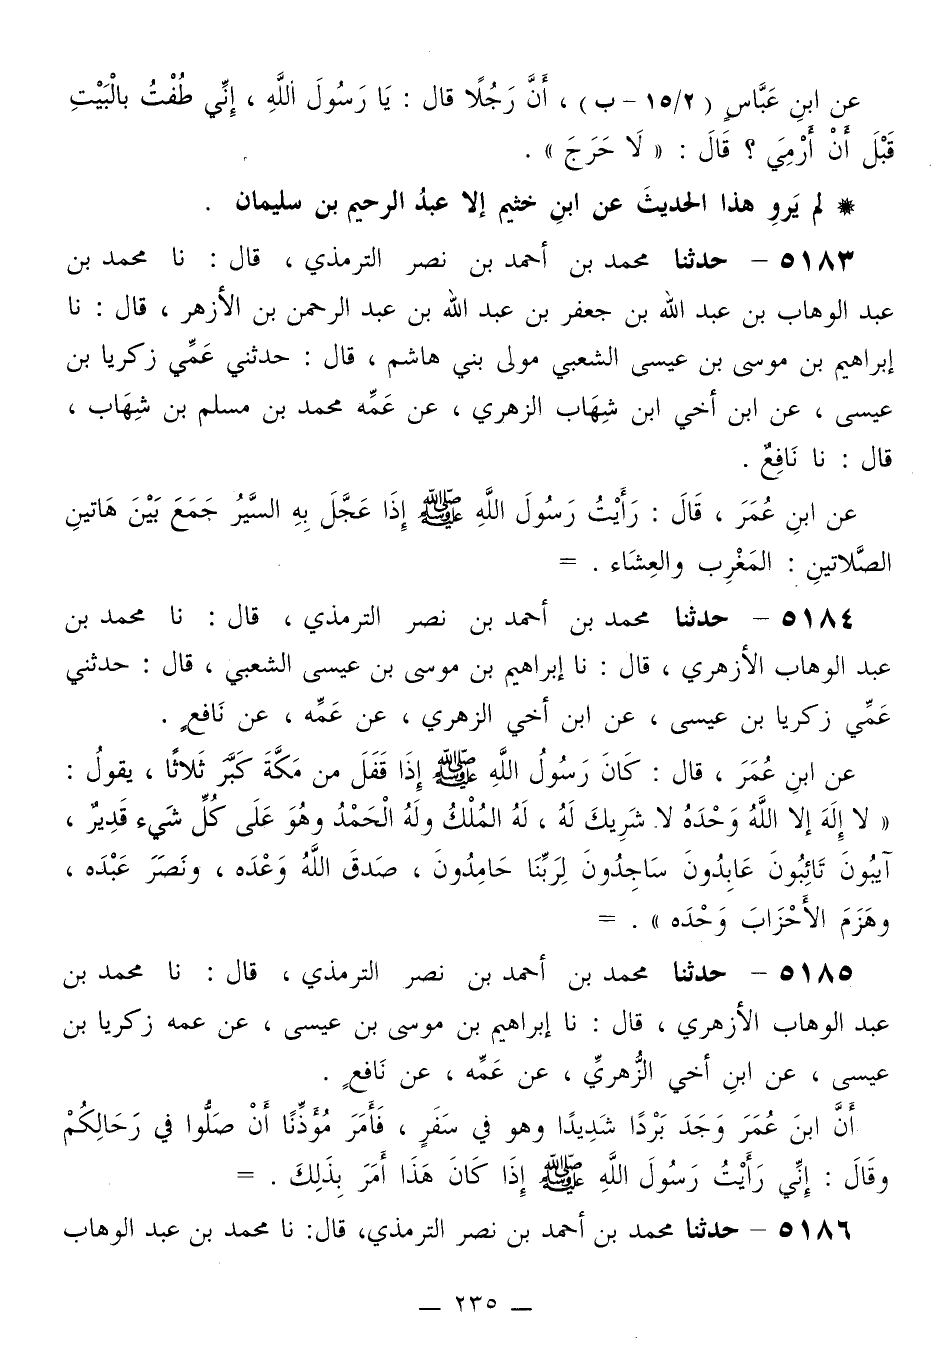 عن ابنِ عَبَّاسٍ ( ١٥/٢ - ب ) ، أَنَّ رَجُلًا قال : يَا رَسُولَ اللَّهِ ، إِنِّي طُفْتُ بالْبَيْتِ
قَبْلَ أَنْ أَرْمِيَ ؟ قَالَ : « لَا حَرَجَ » .
* لم يَروِ هذا الحديثَ عن ابنِ خثيم إلا عبدُ الرحيم بن سليمان .
٥١٨٣ - حدثنا محمد بن أحمد بن نصر الترمذي ، قال : نا محمد بن
عبد الوهاب بن عبد الله بن جعفر بن عبد الله بن عبد الرحمن بن الأزهر ، قال : نا
إبراهيم بن موسى بن عيسى الشعبي مولى بني هاشم ، قال : حدثني عَمِّي زكريا بن
عيسى ، عن ابن أخي ابن شِهَاب الزهري ، عن عَمِّه محمد بن مسلم بن شِهَاب ،
قال : نا نَافِعٌ .
عن ابنِ عُمَرَ ، قَالَ : رَأَيْتُ رَسُولَ اللَّهِ ﷺ إِذَا عَجَّلَ بِهِ السَّيْرُ جَمَعَ بَيْنَ هَاتينِ
الصَّلاتينِ : المَغْرِب والعِشَاء . =
٥١٨٤ - حدثنا محمد بن أحمد بن نصر الترمذي ، قال : نا محمد بن
عبد الوهاب الأزهري ، قال : نا إبراهيم بن موسى بن عيسى الشعبي ، قال : حدثني
عَمِّي زكريا بن عيسى ، عن ابن أخي الزهري ، عن عَمِّه ، عن نَافعٍ .
عن ابنِ عُمَرَ ، قال : كَانَ رَسُولُ اللَّهِ ﷺ إِذَا قَفَلَ من مَكَّةَ كَبَّرَ ثَلاثًا ، يقولُ :
« لا إِلَهَ إلا اللَّهُ وَحْدَهُ لا شَرِيكَ لَهُ ، لَهُ المُلْكُ ولَهُ الْحَمْدُ وهُوَ عَلَى كُلِّ شَيء قَدِيرٌ ،
آيبُونَ تَائِبُونَ عَابِدُونَ سَاجِدُونَ لِرَبِّنَا حَامِدُونَ ، صَدقَ اللَّهُ وَعْدَه ، ونَصَرَ عَبْدَه ،
وهَزَمَ الأَحْزَابَ وَحْدَه » . =
٥١٨٥ - حدثنا محمد بن أحمد بن نصر الترمذي ، قال : نا محمد بن
عبد الوهاب الأزهري ، قال : نا إبراهيم بن موسى بن عيسى ، عن عمه زكريا بن
عيسى ، عن ابنِ أخي الزُّهريِّ ، عن عَمِّه ، عن نَافعٍ .
أَنَّ ابنَ عُمَرَ وَجَدَ بَرْدًا شَدِيدًا وهو في سَفَرٍ ، فَأَمَرَ مُؤَذِّنًا أَنْ صَلُّوا في رَحَالِكُمْ
وقَالَ : إِنِّي رَأَيْتُ رَسُولَ اللَّهِ ﷺ إِذَا كَانَ هَذَا أَمَرَ بِذَلِكَ . =
٥١٨٦ - حدثنا محمد بن أحمد بن نصر الترمذي، قال: نا محمد بن عبد الوهاب
— ٢٣٥ —